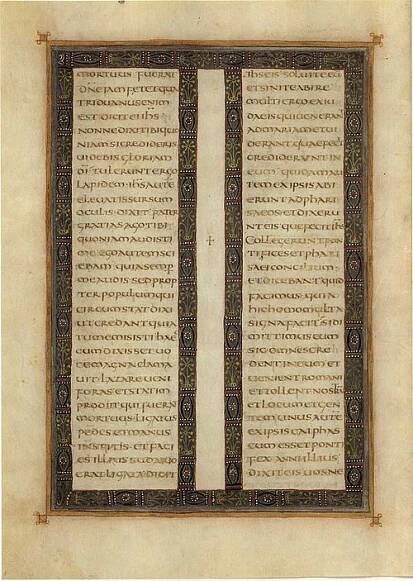 MORTUUS FUERAT
DNE IAM FETET QUA
TRIDUANUS ENIM
EST DICIT EI IHS
NONNE DIXI TIBI QUO
NIAM SI CREDIDERIS
UIDEBIS GLORIAM
DI TULERUNT ERGO
LAPIDEM IHS AUTE
ELEUATIS SURSUM
OCULIS DIXIT PATER
GRATIAS AGO TIBI
QUONIAM AUDISTI
ME EGO AUTEM SCI
EBAM QUIA SEMP
ME AUDIS SED PROP
TER POPULUM QUI
CIRCUMSTAT DIXI
UT CREDANT QUIA
TU ME MISISTI HAEC
CUM DIXISSET UO
CE MAGNA CLAMA
UIT LAZARE UENI
FORAS ET STATIM
PRODIIT QUI FUERA
MORTUUS LIGATUS
PEDES ET MANUS
INSTITIS ET FACI
ES ILLIUS SUDARIO
ERAT LIGATA DICIT
IHS EIS SOLUITE EU
ET SINITE ABIRE
MULTI ERGO EX IU
DAEIS QUI UENERAN
AD MARIAM ET UI
DERANT QUAE FECIT
CREDIDERUNT IN
EUM QUIDAM AU
TEM EX IPSIS ABI
ERUNT AD PHARI
SAEOS ET DIXERU
NT EIS QUE FECIT IHS
COLLEGERUNT PON
TIFICES ET PHARI
SAEI CONCILIUM
ET DICEBANT QUID
FACIMUS QUIA
HIC HOMO MULTA
SIGNA FACIT SI DI
MITTIMUS EUM
SIC OMNES CRE
DENT IN EUM ET
UENIENT ROMANI
ET TOLLENT NOSTRU
ET LOCUM ET GEN
TEM UNUS AUTE
EX IPSIS CAIPHAS
CUM ESSET PONTI
FEX ANNI ILLIUS
DIXIT EIS UOS NE